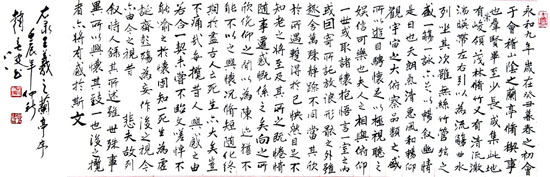 永和九年歲在癸丑暮春之初會
于會稽山陰之蘭亭脩禊事
也群賢畢至少長咸集此地
有峻領茂林脩竹又有清流激
湍暎帶左右引以為流觴曲水
列坐其次雖無絲竹管弦之
盛一觴一詠亦足以暢敘幽情
是日也天朗氣清惠風和暢仰
觀宇宙之大俯察品類之盛
所以遊目騁懷足以極視聽之
娛信可樂也夫人之相與俯仰
一世或取諸懷抱悟言一室之內
或因寄所託放浪形骸之外雖
趣舍萬殊靜躁不同當其欣
於所遇暫得於己快然自足不
知老之將至及其所之既惓情
隨事遷感慨係之矣向之所
欣俛仰之間以為陳迹猶不
能不以之興懷況脩短隨化終
期於盡古人云死生亦大矣豈
不痛哉每攬昔人興感之由
若合一契未嘗不臨文嗟悼不
能喻之於懷固知死生為虛
誕齊彭殤為妄作後之視今
亦由今之視昔 悲夫故列
敘時人錄其所述雖世殊事
異所以興懷其致一也後之攬
者亦將有感於斯文
右录王羲之蘭亭序
壬辰年仲秋